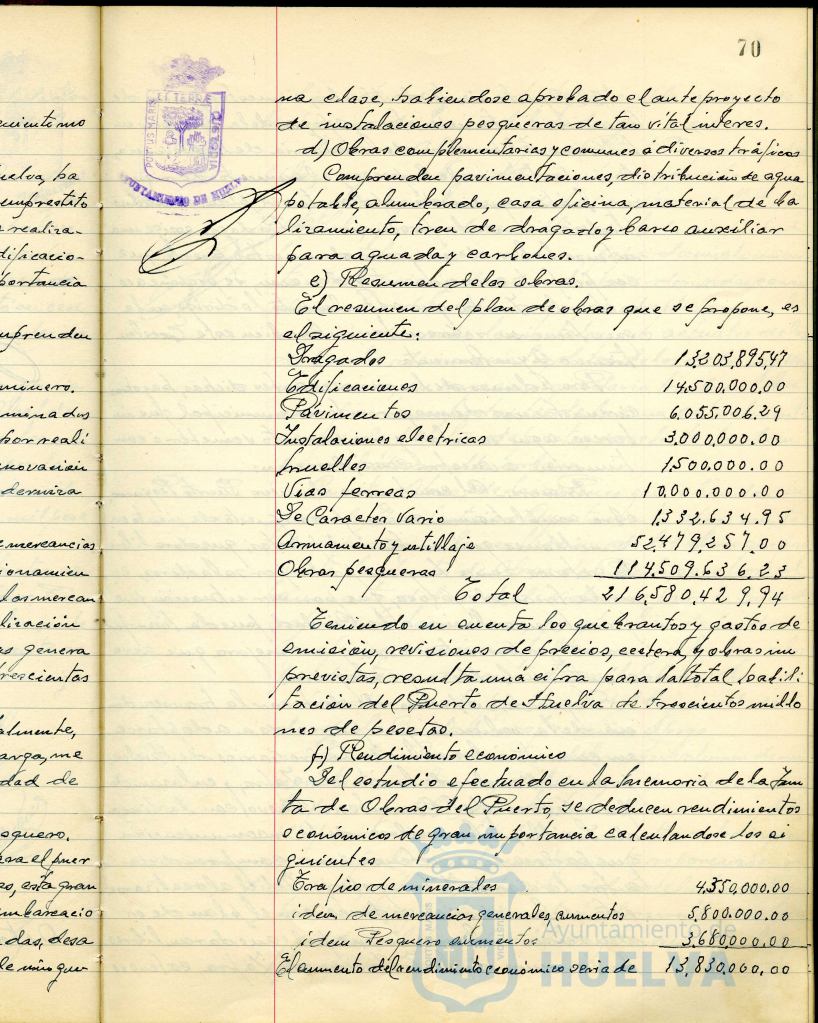 70
na clase, habiendose aprobado el ante proyecto
de instalaciones pesqueras de tan vital interes.
d) Obras complementarias y comunes a diversos tráficos
Comprenden pavimentaciones, distribución de agua
potable, alumbrado, casa oficina, material de ba
lizamiento, tren de dragado y barco auxiliar
para aguada y carbones.
e) Resumen de las obras.
El resumen del plan de obras que se propone, es
el siguiente:
Dragados 13.203.895,47
Edificaciones 14.500.000.00
Pavimentos 6.055.006.29
Instalaciones electricas 3.000.000.00
Muelles 1.500.000.00
Vias ferreas 10.000.000.00
De Caracter Vario 1.332.634.95
Armamento y utillaje 52.479.257.00
Obras pesqueras 114.509.636.23
Total 216.580.429,94
Teniendo en cuenta los quebrantos y gastos de
emisión, revisiones de precios, ecetera, y obras im
previstas, resulta una cifra para la total habili
tación del Puerto de Huelva de trescientos millo
nes de pesetas.
f) Rendimiento económico
Del estudio efectuado en la Memoria de la Jun
ta de Obras del Puerto, se deducen rendimientos
económicos de gran importancia calculandose los si
guientes
Trafico de minerales 4.350,000.00
idem de mercancias generales, aumentos 5.800.000.00
idem Pesquero aumentos 3.680,000.00
El aumento del rendimiento economico seria de 13,830.000,00
uelva, ha
emprestito
realiza-
dificacio-
portancia
mprenden
minero.
minados
por reali
novación
e mercancias
ionamien
las mercan
lización
as genera
rescientos
almente,
arga, me
dad de
squero.
ara el puer
es, esta gran
mbarcacio
das, desa
PORTUS MARIS
ET TERRE
CUSTODIA
AYUNTAMIENTO DE HUELVA
Ayuntamiento de
HUELVA